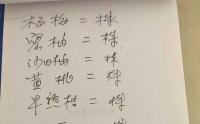 杨梅=株
蜜柚=株
沙田柚=株
黄桃=株
早熟桔=株